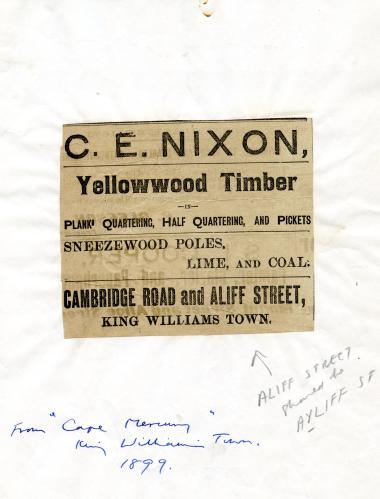 C. E. NIXON,
Yellowwood Timber
—IN—
PLANK, QUARTERING, HALF QUARTERING, AND PICKETS
SNEEZEWOOD POLES,
LIME, AND COAL.
CAMBRIDGE ROAD and ALIFF STREET,
KING WILLIAMS TOWN.
ALIFF STREET.
should be
AYLIFF ST
From "Cape Mercury"
King William's Town.
1899.